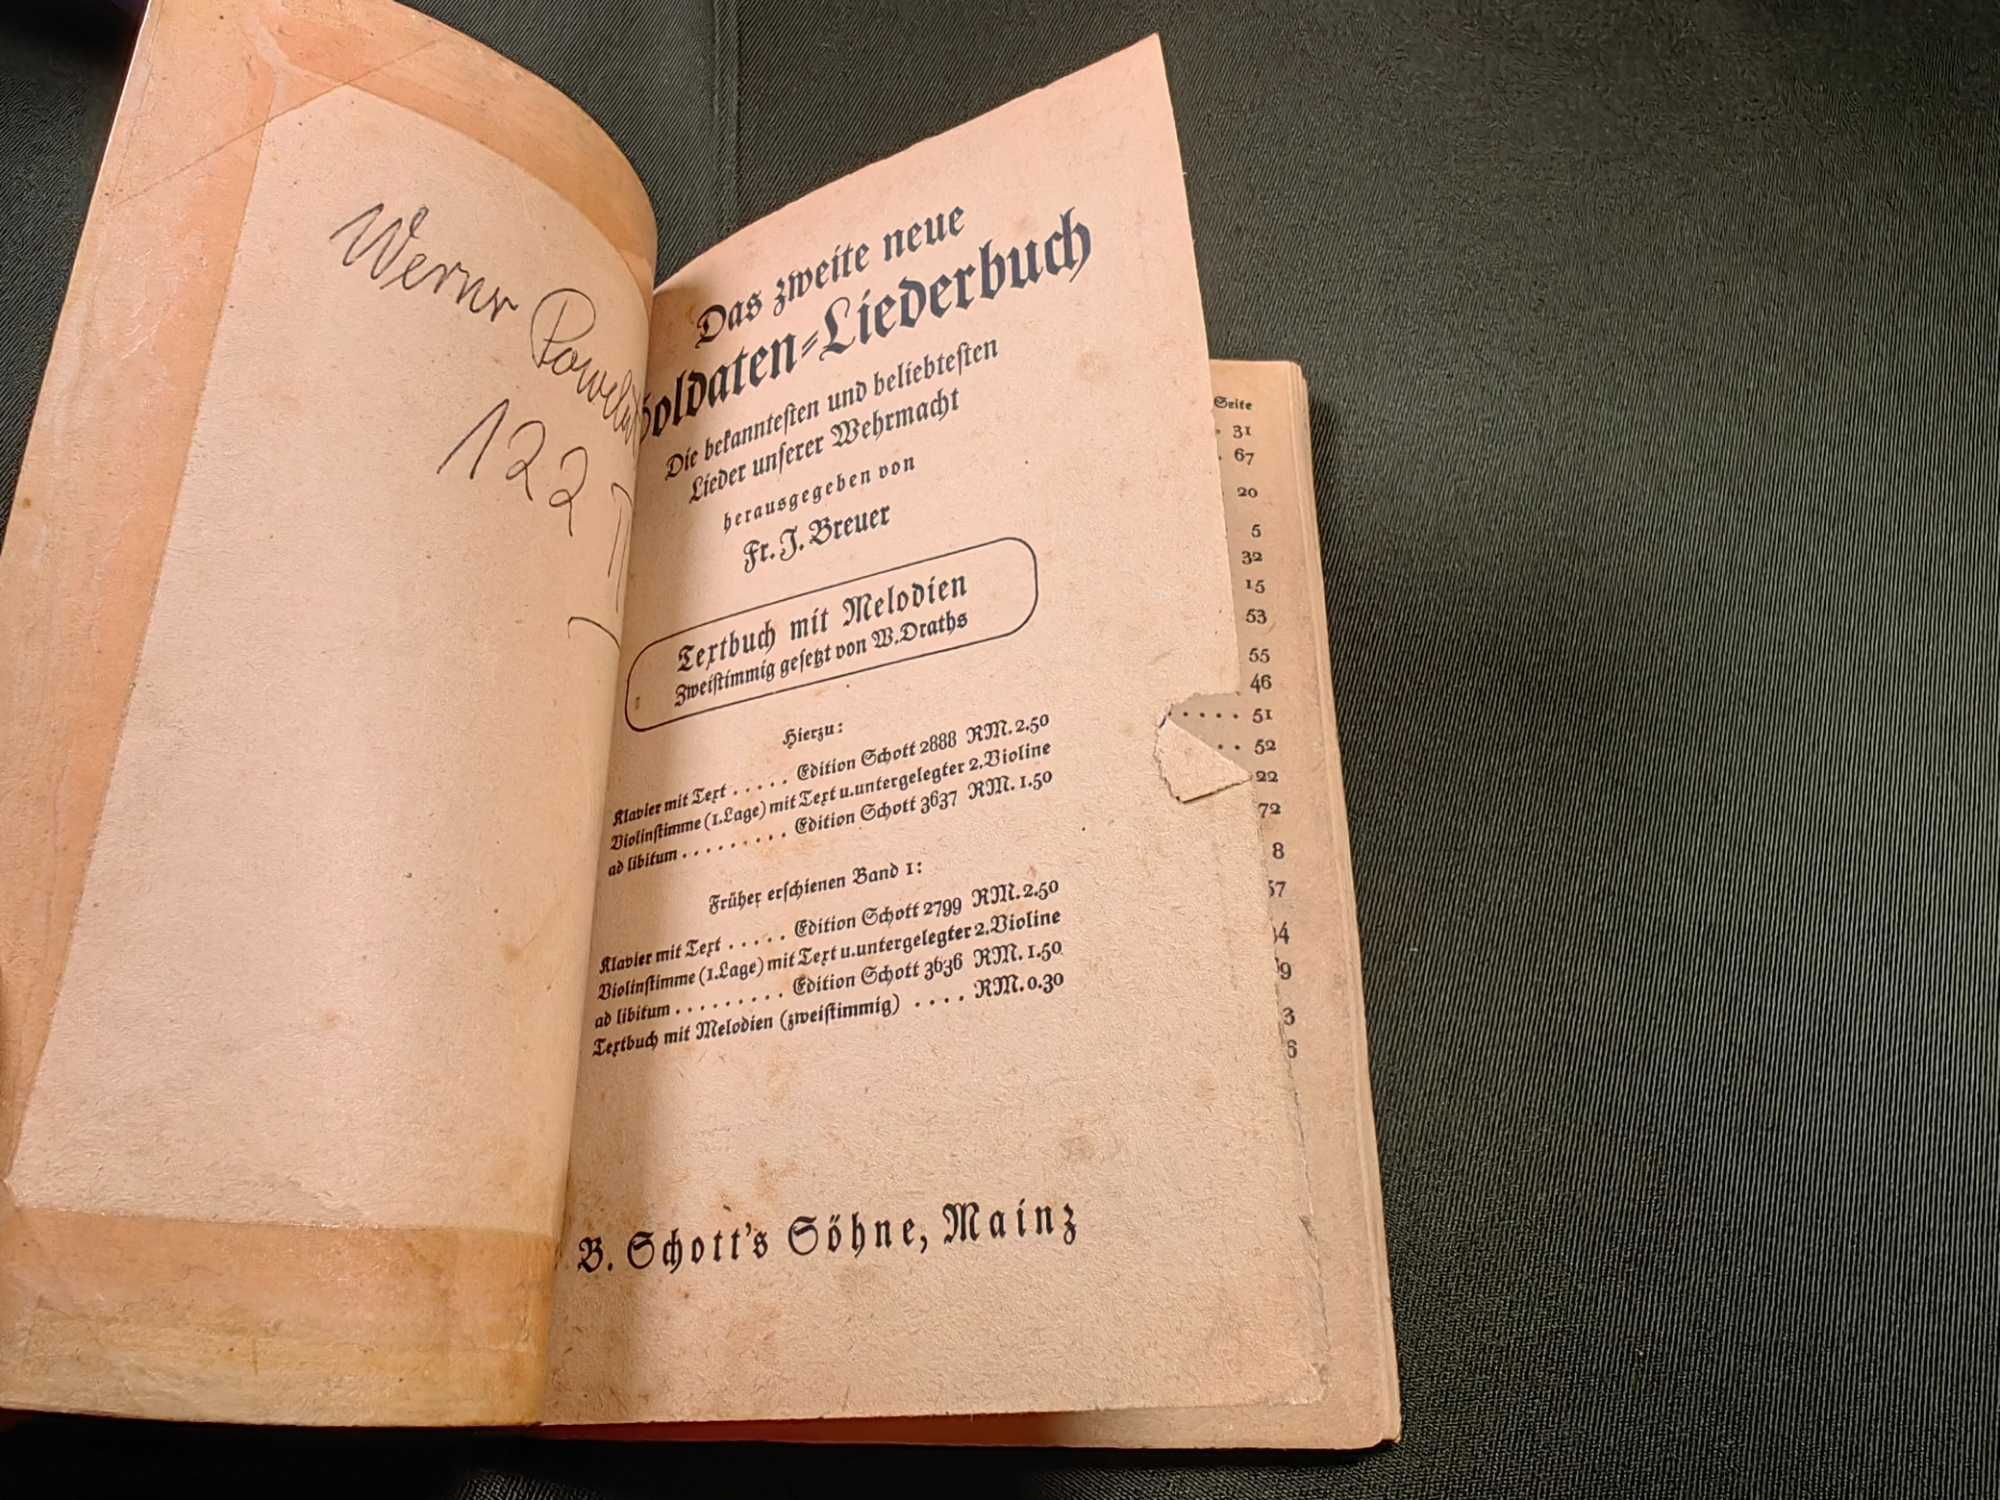 Werner
122
Das zweite neue
Soldaten-Liederbuch
Die bekanntesten und beliebtesten
Lieder unserer Wehrmacht
herausgegeben von
Fr. J. Breuer
Textbuch mit Melodien
Zweistimmig gesetzt von W. Draths
Hierzu:
Klavier mit Text . . . . . Edition Schott 2888 RM. 2.50
Violinstimme (1. Lage) mit Text u. untergelegter 2. Violine
ad libitum . . . . . . . . . Edition Schott 3637 RM. 1.50
Früher erschienen Band 1:
Klavier mit Text . . . . . Edition Schott 2799 RM. 2.50
Violinstimme (1. Lage) mit Text u. untergelegter 2. Violine
ad libitum . . . . . . . . . Edition Schott 3636 RM. 1.50
Textbuch mit Melodien (zweistimmig) . . . . RM. 0.30
B. Schott's Söhne, Mainz
Seite
. 31
. 67
20
5
32
15
53
55
46
. . . . 51
. . 52
22
72
8
57
34
9
3
6